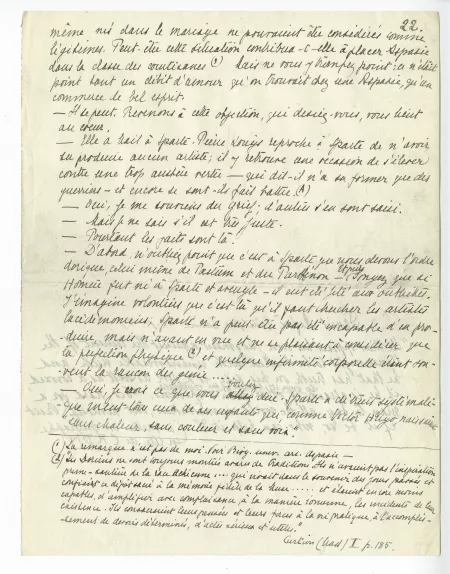 22.
même nés dans le mariage ne pouvaient être considérés comme
légitimes. Peut être cette situation contribua-t-elle à placer Aspasie
dans la classe des courtisanes (1) Mais ne vous y trompez point : ce n'était
point tant un débit d'amour qu'on trouvait chez une Aspasie, qu'un
commerce de bel esprit.
— Il se peut. Revenons à cette objection, qui disiez-vous, vous tient
au cœur.
— Elle a trait à Sparte. Pierre Louÿs reproche à Sparte de n'avoir
su produire aucun artiste ; il y retrouve une occasion de s'élever
contre une trop austère vertu — qui dit-il n'a su former que des
guerriers — et encore se sont-ils fait battre. (A)
— Oui, je me souviens du grief ; d'autres s'en sont saisi.
— Mais je ne sais s'il est très juste.
— Pourtant les faits sont là.
— D'abord, n'oubliez point que c'est à Sparte que nous devons l'ordre
dorique, celui même de Paestum et du Parthénon. Et puis songez que si
Homère fut né à Sparte et aveugle — il eut été jeté aux oubliettes.
J'imagine volontiers que c'est là qu'il faut chercher les artistes
lacédémoniens ; Sparte n'a peut-être pas été incapable d'en pro-
duire, mais n'ayant en vue et ne se plaisant à considérer que
la perfection physique (2) et quelque infirmité corporelle étant sou-
vent la rançon du génie ....
— Oui, je vois ce que vous voulez dire : Sparte a détruit systémati-
quement tous ceux de ses enfants qui, comme Victor Hugo, naissaient
"sans chaleur, sans couleur et sans voix".
(1) La remarque n'est pas de moi. Voir Biog. univ. art. Aspasie —
(2) "Les Doriens ne sont toujours montrés avares de traditions. Ils n'avaient pas l'inspiration
prime-sautière de la race achéenne ... qui vivait dans le souvenir des jours passés et
confiait ce dépôt sacré à la mémoire fidèle de la Muse ..... et étaient encore moins
capables, d'amplifier avec complaisance, à la manière ionienne, les incidents de leur
existence. Ils consacraient leurs pensées et leurs faits à la vie pratique, à l'accomplis-
sement de devoirs déterminés, d'actes sérieux et utiles."
Curtius (trad) I p. 185.